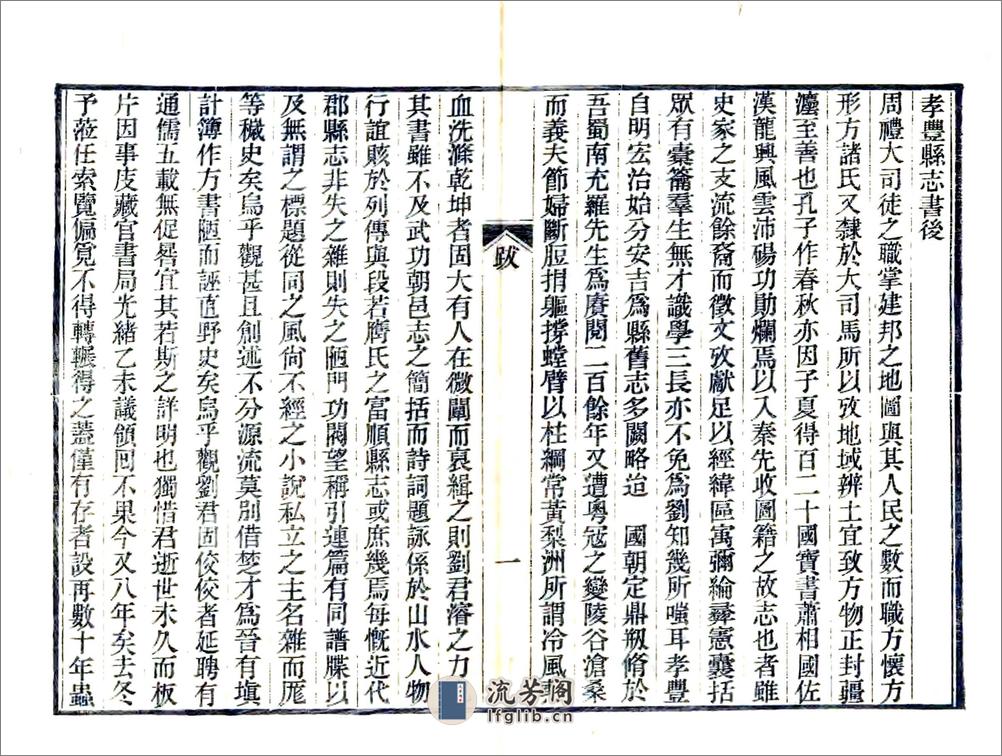 孝豐縣志書後
周禮大司徒之職掌建邦之地圖與其人民之數而職方懷方
形方諸氏又隸於大司馬所以攷地域辨土宜致方物正封疆
灋至善也孔子作春秋亦因子夏得百二十國寶書蕭相國佐
漢龍興風雲沛碭功勛爛焉以入秦先收圖籍之故志也者雖
史家之支流餘裔而徵文攷獻足以經緯區寓彌綸彝憲囊括
眾有橐籥羣生無才識學三長亦不免爲劉知幾所嗤耳孝豐
自明宏治始分安吉爲縣舊志多闕略迨 國朝定鼎剏脩於
吾蜀南充羅先生爲賡閱二百餘年又遭粵寇之變陵谷滄桑
而義夫節婦斷脰捐軀撐螳臂以柱綱常黃梨洲所謂冷風
血洗滌乾坤者固大有人在微闡而裒緝之則劉君濬之力
其書雖不及武功朝邑志之簡括而詩詞題詠係於山水人物
行誼賅於列傳與段若膺氏之富順縣志或庶幾焉每慨近代
郡縣志非失之雜則失之陋門功閥望稱引連篇有同譜牒以
及無謂之標題從同之風尙不經之小說私立之主名雜而厖
等穢史矣烏乎觀甚且創述不分源流莫別借楚才爲晉有塡
計簿作方書陋而誣直野史矣烏乎觀劉君固佼佼者延聘有
通儒五載無促晷宜其若斯之詳明也獨惜君逝世未久而板
片因事庋藏官書局光緒乙未議領囘不果今又八年矣去冬
予蒞任索覽偏覓不得轉輾得之蓋僅有存者設再數十年蟲
跋
一
流芳閣
lfglib.cn